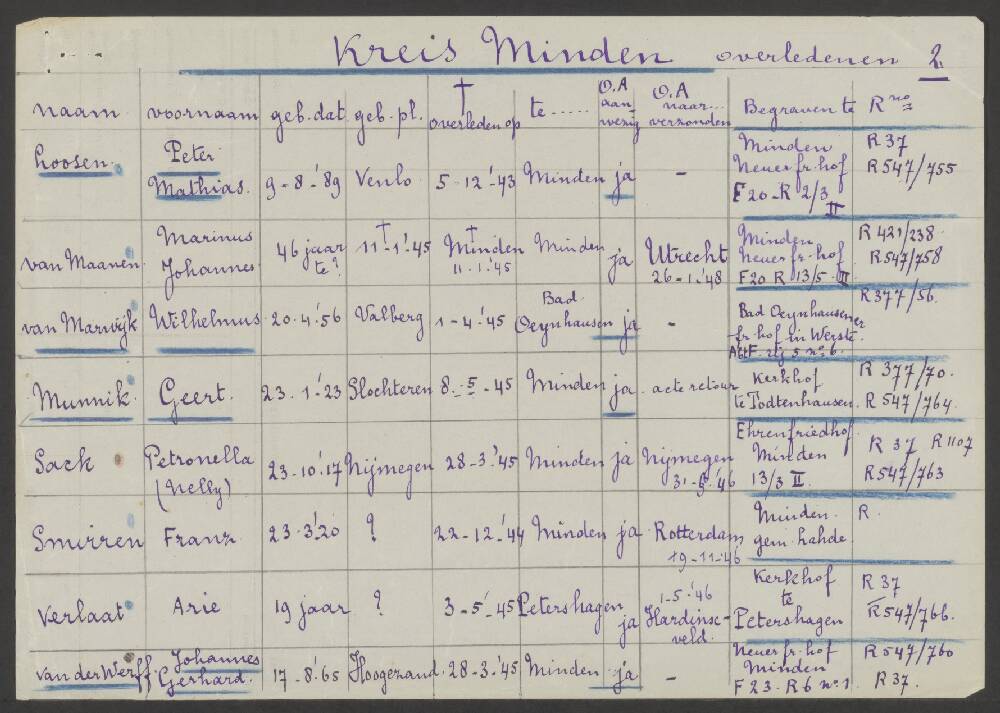 Kreis Minden overledenen 2.
naam voornaam geb. dat. geb. pl. † overleden op te ..... O.A aanwezig O.A naar... verzonden Begraven te R no
Loosen. Peter Mathias. 9-8-'89 Venlo 5-12-'43 Minden ja - Minden Neuer fr. hof F 20-R 2/3 II R 37 R 547/755
van Maanen. Marinus Johannes 46 jaar te? † 11-1-'45 † Minden 11-1-'45 Minden ja Utrecht 26-1-'48 Minden Neuer fr. hof F 20 R 13/5 II R 421/238. R 547/758
van Marwijk Wilhelmus 20-4-'56 Valberg 1-4-'45 Bad Oeynhausen ja - Bad Oeynhausener fr. hof in Werste. no 6. R 377/56.
Munnik. Geert. 23-1-'23 Slochteren 8-5-45 Minden ja. acte retour Kerkhof te Todtenhausen. R 377/70. R 547/764.
Sack Petronella (Nelly) 23-10-'17 Nijmegen 28-3-'45 Minden ja Nijmegen '46 Ehrenfriedhof Minden 13/3 II. R 37 R 1107 R 547/763
Smirren Franz 23-3-'20 ? 22-12-'44 Minden ja Rotterdam 19-11-'46 Minden. gem. hahde. R.
Verlaat Arie 19 jaar ? 3-5-'45 Petershagen ja 1-5-'46 Hardinxveld. Kerkhof te Petershagen R 37 R 547/766.
van der Werff. Johannes Gerhard. 17-8-'65 Hoogezand 28-3-'45 Minden ja - Neuer fr. hof Minden F 23-R 6 no 1 R 547/760 R 37.